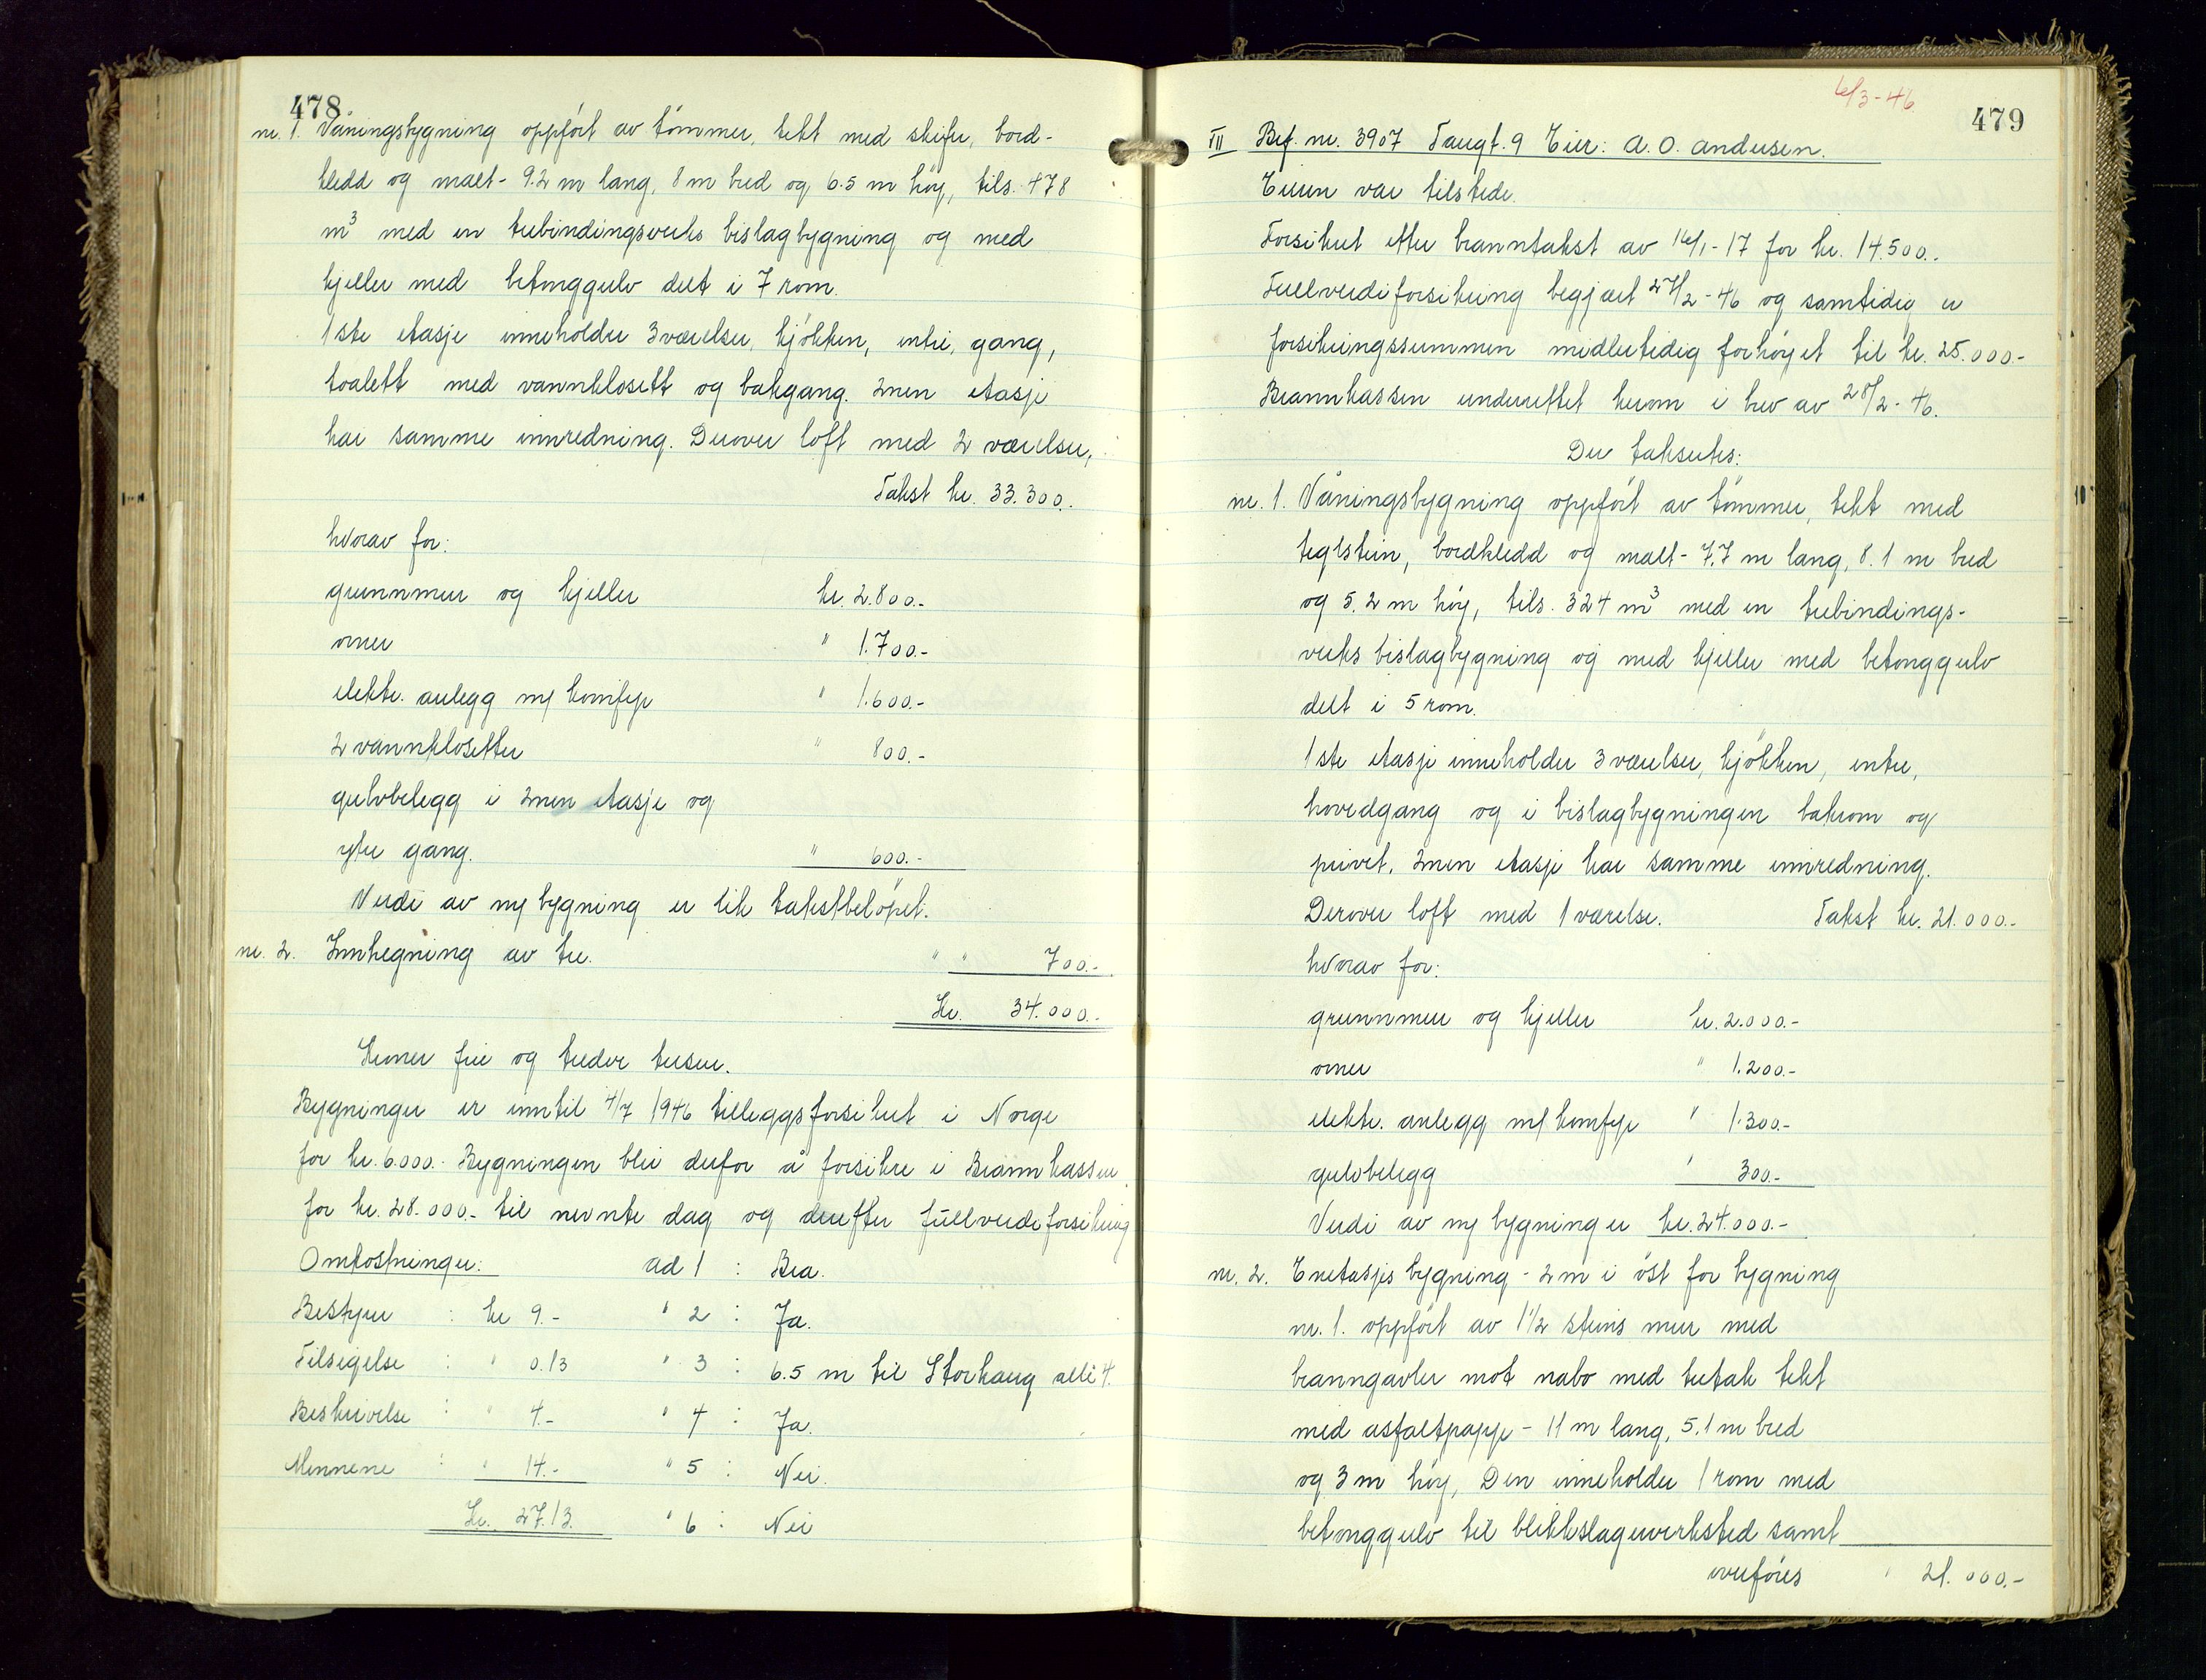 478
nr. 1. Våningsbygning oppfört av tömmer, tekt med skifer, bord-
kledd og malt - 9.2 m lang, 8 m bred og 6.5 m höy, tils. 478
m³ med en trebindingsverks bislagbygning og med
kjeller med betonggulv delt i 7 rom.
1ste etasje inneholder 3 værelser, kjökken, entre, gang,
toalett med vannklosett og bakgang. 2nen etasje
har samme innredning. Derover loft med 2 værelser,
Takst kr. 33.300.
hvorav for:
grunnmur og kjeller kr. 2.800.-
ovner " 1.700.-
elektr. anlegg m/ komfyr " 1.600.-
2 vannklosetter " 800.-
gulvbelegg i 2nen etasje og
ytre gang. " 600.-
Verdi av ny bygning er lik takstbelöpet.
nr. 2. Innhegning av tre. " " 700.-
Kr. 34.000.-
Kroner fire og tredve tusen.
Bygninger er inntil 4/7 1946 tilleggsforsikret i Norge
for kr. 6.000.- Bygningen blir derfor å forsikre i Brannkassen
for kr. 28.000.- til nevnte dag og derefter fullverdiforsikring
Omkostninger: ad 1 : Bra.
Bestyrer : kr 9.- " 2 : Ja.
Tilsigelse : " 0.13 " 3 : 6.5 m til Storhaug allé 4.
Beskrivelse : " 4.- " 4 : Ja.
Mennene : " 14.- " 5 : Nei.
Kr. 27.13. " 6 : Nei
6/3-46.
479
III Brf. nr. 3907 Taugt. 9 Eier: A. O. Andersen.
Eieren var tilstede.
Forsikret efter branntakst av 16/1-17 for kr. 14.500.-
Fullverdiforsikring begjært 27/2-46 og samtidig er
forsikringssummen midlertidig forhöyet til kr. 25.000.-
Brannkassen underrettet herom i brev av 28/2-46.
Der takseres:
nr. 1. Våningsbygning oppfört av tömmer, tekt med
teglstein, bordkledd og malt - 7.7 m lang, 8.1 m bred
og 5.2 m höy, tils. 324 m³ med en trebindings-
verks bislagbygning og med kjeller med betonggulv
delt i 5 rom.
1ste etasje inneholder 3 værelser, kjökken, entre,
hovedgang og i bislagbygningen bakrom og
privet. 2nen etasje har samme innredning.
Derover loft med 1 værelse. Takst kr. 21.000.-
hvorav for:
grunnmur og kjeller kr. 2.000.-
ovner " 1.200.-
elektr. anlegg m/ komfyr " 1.300.-
gulvbelegg " 300.-
Verdi av ny bygning er kr. 24.000.-
nr. 2. Enetasjes bygning - 2 m i öst for bygning
nr. 1. oppfört av 1 1/2 steins mur med
branngavler mot nabo med tretak tekt
med asfaltpapp - 11 m lang, 5.1 m bred
og 3 m höy, Den inneholder 1 rom med
betonggulv til blikkslagerverksted samt
overföres " 21.000.-